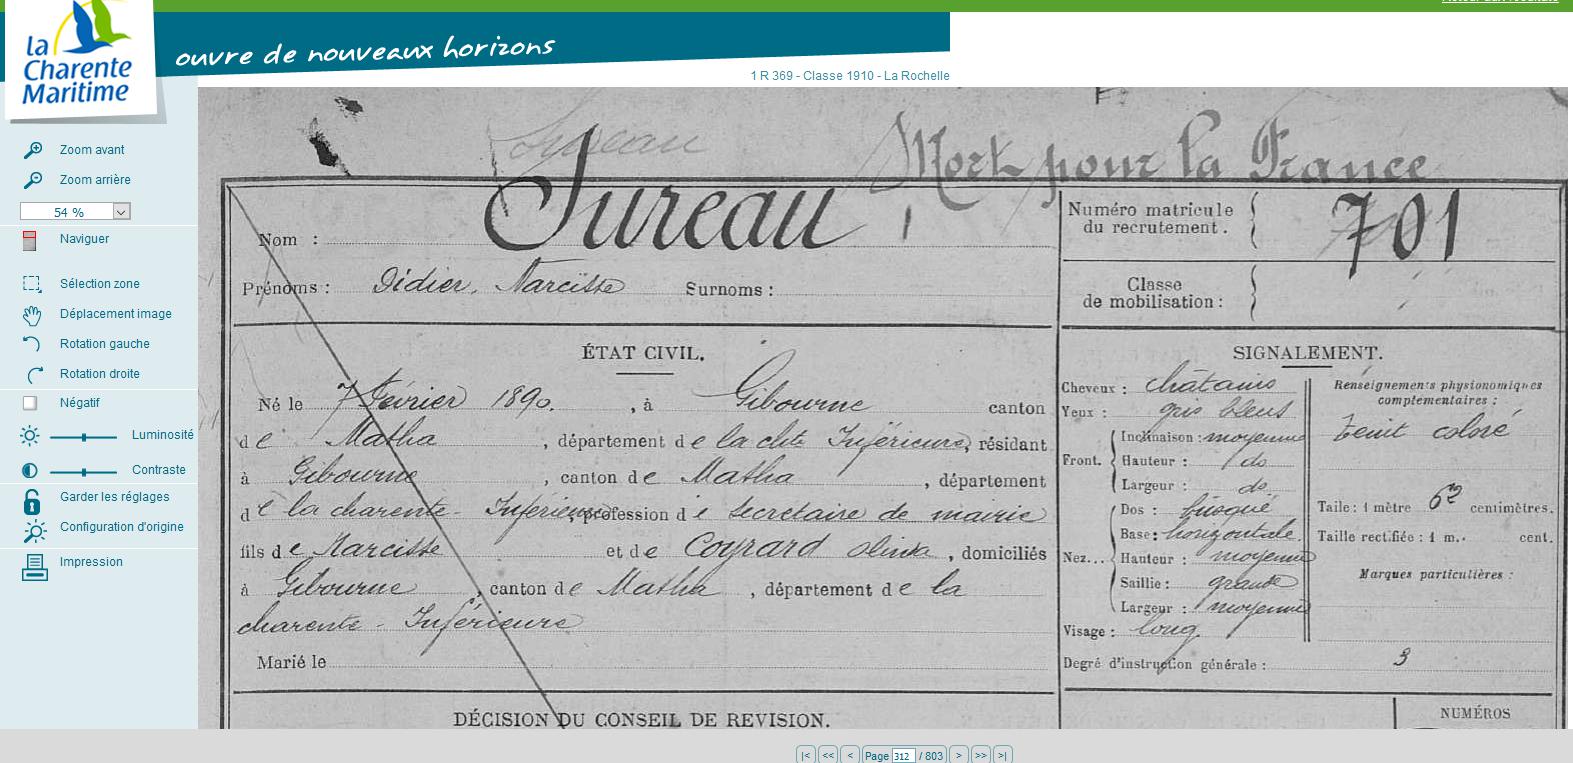 Retour aux résultats
la
Charente
Maritime
ouvre de nouveaux horizons
1 R 369 - Classe 1910 - La Rochelle
Zoom avant
Zoom arrière
54 %
Naviguer
Sélection zone
Déplacement image
Rotation gauche
Rotation droite
Négatif
Luminosité
Contraste
Garder les réglages
Configuration d'origine
Impression
Sureau
Mort pour la France
Nom : Sureau
Prénoms : Didier, Narcisse Surnoms :
Numéro matricule
du recrutement. 701
Classe
de mobilisation :
ÉTAT CIVIL.
Né le 7 février 1890, à Gibourne canton
de Matha, département de la chte Inférieure, résidant
à Gibourne, canton de Matha, département
de la charente-Inférieure, profession de secrétaire de mairie
fils de Narcisse et de Coyrard, domiciliés
à Gibourne, canton de Matha, département de la
charente-Inférieure
Marié le
DÉCISION DU CONSEIL DE REVISION.
SIGNALEMENT.
Cheveux : châtains
Yeux : gris bleus
Front. Inclinaison : moyenne
Hauteur : do
Largeur : do
Nez... Dos : busqué
Base : horizontale
Hauteur : moyenne
Saillie : grande
Largeur : moyenne
Visage : long
Renseignements physionomiques
complémentaires :
Teint coloré
Taille : 1 mètre 62 centimètres.
Taille rectifiée : 1 m. cent.
Marques particulières :
Degré d'instruction générale : 3
NUMÉROS
|< << < Page 312 / 803 > >> >|